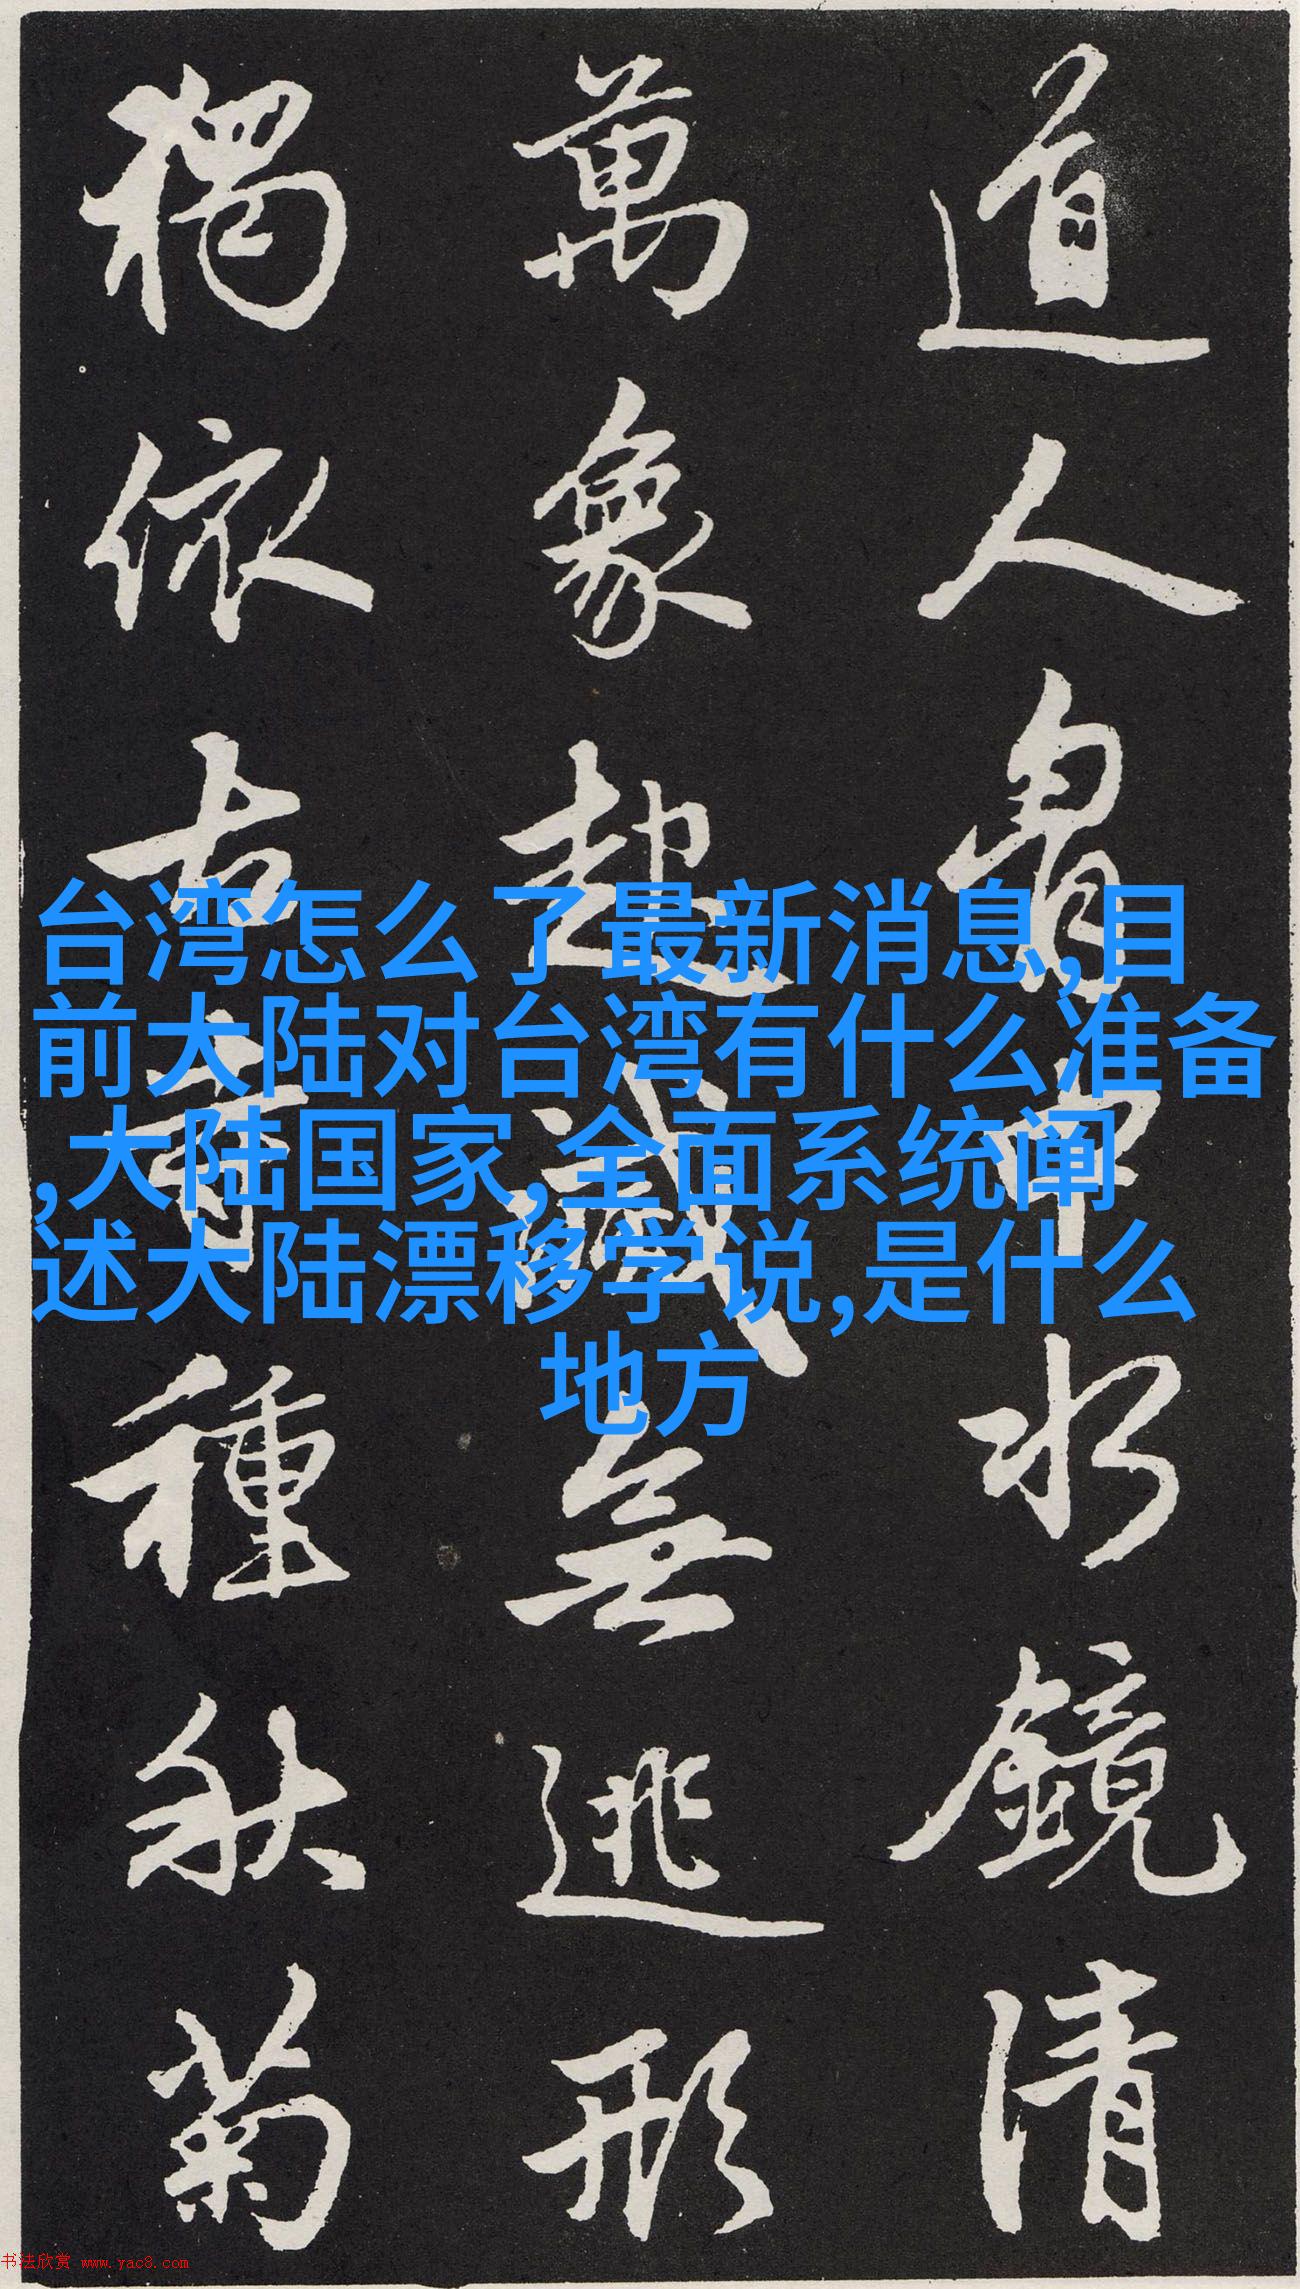 道人胷中水鏡清
萬象起滅無逃形
獨依古寺種秋菊
台湾怎么了最新消息,目
前大陆对台湾有什么准备
,大陆国家,全面系统阐
述大陆漂移学说,是什么
地方
书法欣赏 www.yac8.com